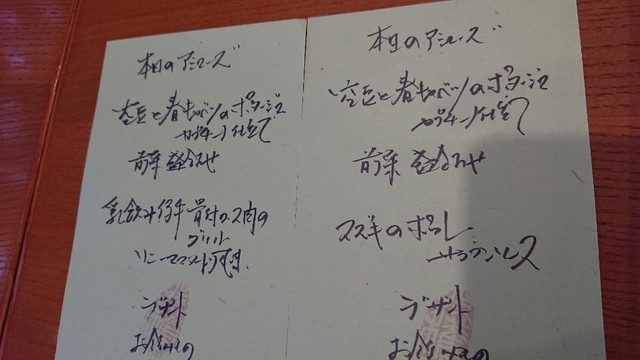 本日のアミューズ
空豆と春キャベツのポタージュ
カプチーノ仕立て
前菜盛合わせ
乳飲み仔羊骨付ロース肉の
グリル
デザート
本日のアミューズ
空豆と春キャベツのポタージュ
カプチーノ仕立て
前菜盛合わせ
スズキのポワレ
デザート